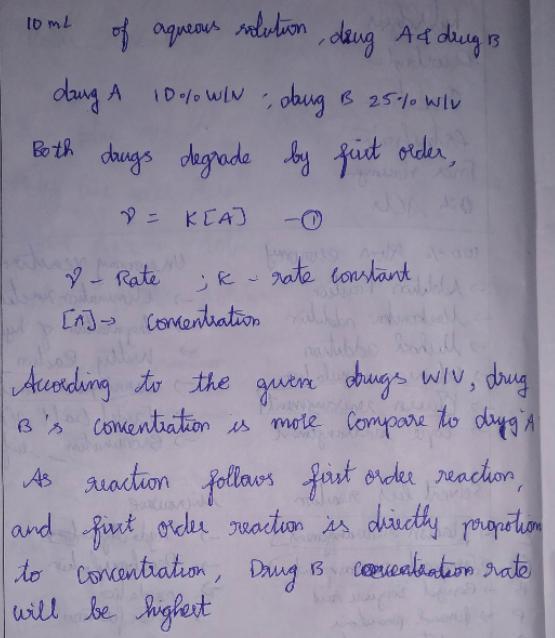 10 mL of aqueous solution, drug A & drug B
drug A 10% W/V ; drug B 25% W/V
Both drugs degrade by first order,
r = K[A] —①
r - Rate ; K - rate constant
[A]→ Concentration
According to the given drugs W/V, drug
B's concentration is more compare to drug A
As reaction follows first order reaction,
and first order reaction is directly propotion
to concentration, Drug B rate
will be highest